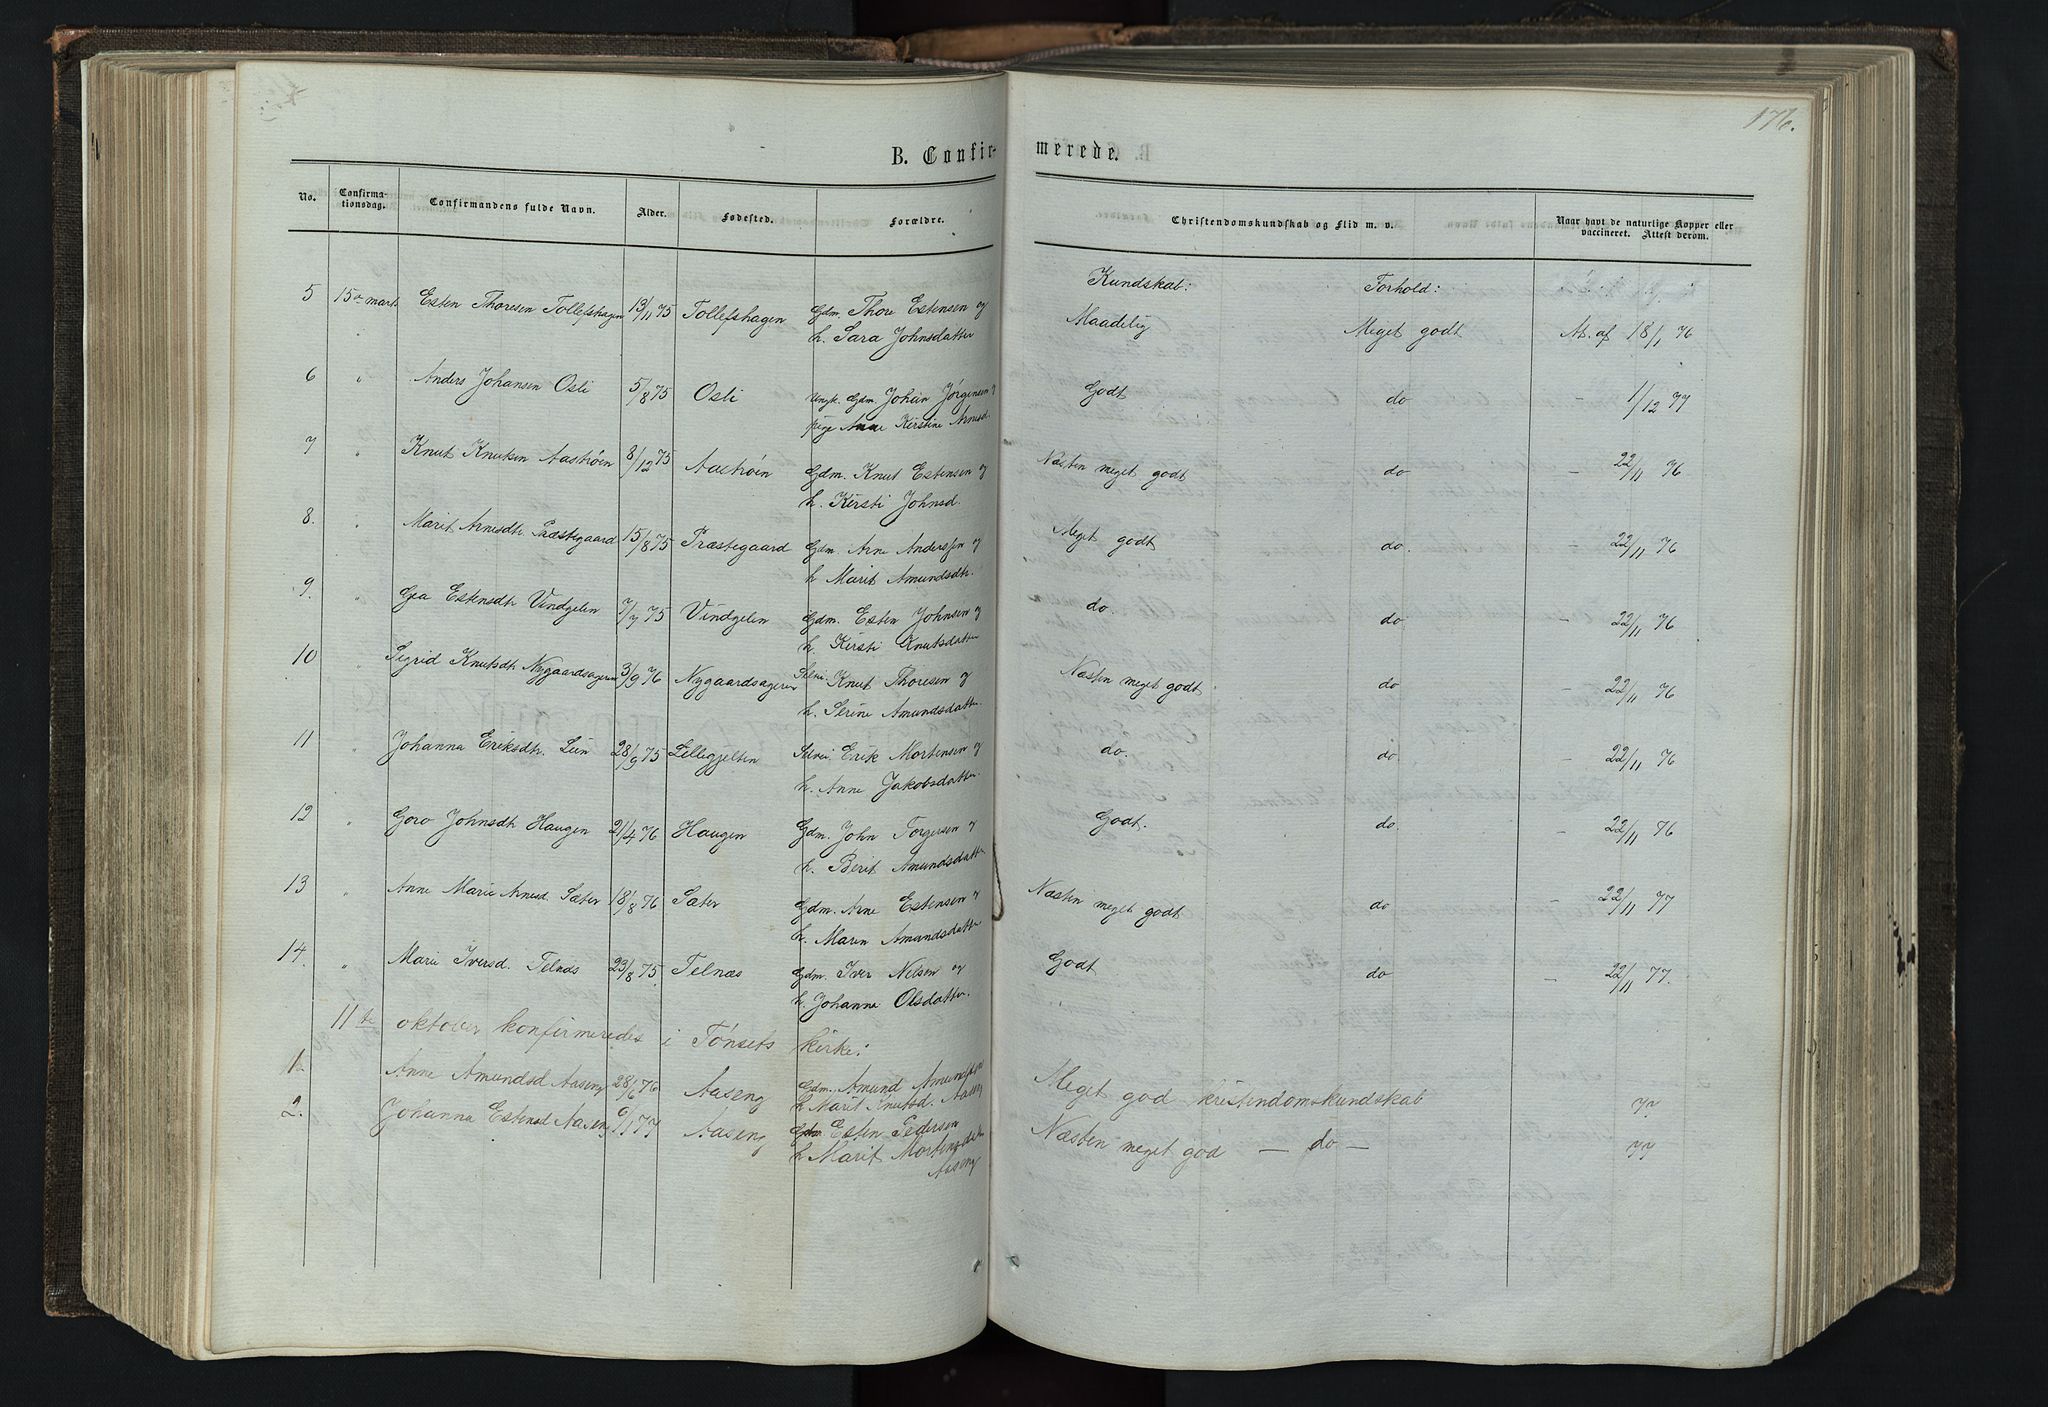 176.
B. Confirmerede.
No. Confirmationsdag. Confirmandens fulde Navn. Alder. Fødested. Forældre. Christendomskundskab og Flid m. v. Naar havt de naturlige Kopper eller vaccineret. Attest derom.
Kundskab: Forhold:
5 15de marts Esten Thoresen Tollefshagen 13/11 75 Tollefshagen Gdm. Thore Estensen og Maadelig Meget godt At. af 18/1 76
h. Sara Johnsdatter
6 " Anders Johansen Osli 5/8 75 Osli Ungk. Gdm. Johan Jörgensen og Godt do - 1/12 77
pige Anne Kirstine Arnesd.
7 " Knut Knutsen Aaströen 8/12 75 Aaströen Gdm. Knut Estensen og Næsten meget godt do - 22/11 76
h. Kirsti Johnsd.
8. " Marit Arnesdtr. Præstegaard 15/8 75 Præstegaard Gdm. Arne Anderssen og Meget godt do. - 22/11 76
h Marit Amundsdtr.
9. " Gea Estensdtr Vindgelen 7/7 75 Vindgelen Gdm. Esten Johnsen og do. do - 22/11 76
h. Kirsti Knutsdatter
10 " Sigrid Knutsdtr Nygaardsageren 3/9 76 Nygaardsageren Selvei. Knut Thoresen og Næsten meget godt do - 22/11 76
h. Serine Amundsdatter.
11 " Johanna Eriksdtr. Lien 28/9 75 Lillegjelten Selvei Erik Mortensen og do. do. - 22/11 76
h. Anne Jakobsdatter.
12 " Goro Johnsdtr Haugen 21/4 76 Haugen Gdm. John Torgersen og Godt. do. - 22/11 76
h. Berit Amundsdatter
13 " Anne Marie Arnesd. Sæter 18/8 76 Sæter Gdm. Arne Estensen og Næsten meget godt do - 22/11 77
h. Maren Amundsdatter
14. " Marie Iversd. Telnæs 23/8 75. Telnæs Gdm. Iver Nilsen og Godt do - 22/11 77.
h. Johanne Olsdatter.
11te oktober konfirmeredes i Tönsets kirke:
1. Anne Amundsd Aaseng 28/6 76 Aaseng Gdm. Amund Amundsen Meget god kristendomskundskab 77
h Marit Knutsd. Aaseng
2. Johanna Estensd Aaseng 6/1 77 Aaseng Gdm Esten Pedersen Næsten meget god - do - 77
h Marit Mortensdatter
Aaseng